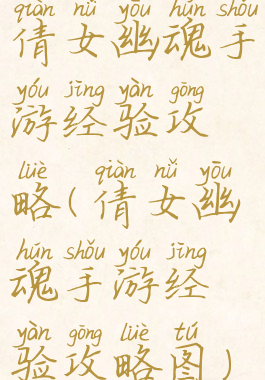 qiàn nǚ yōu hún shǒu
倩女幽魂手
yóu jīng yàn gōng
游经验攻
lüè qiàn nǚ yōu
略(倩女幽
hún shǒu yóu jīng
魂手游经
yàn gōng lüè tú
验攻略图)